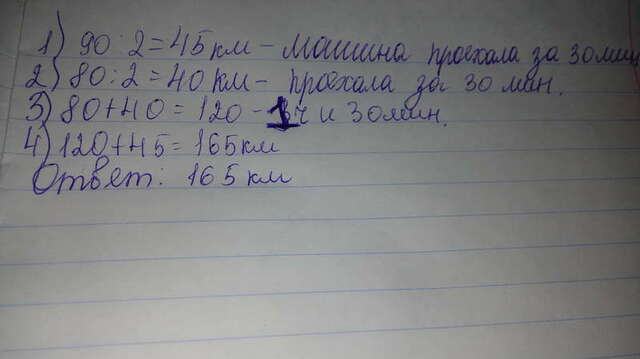 1) 90 : 2 = 45 км - машина проехала за 30 мин
2) 80 : 2 = 40 км - проехала за 30 мин.
3) 80 + 40 = 120 - 1 ч и 30 мин.
4) 120 + 45 = 165 км
Ответ: 165 км